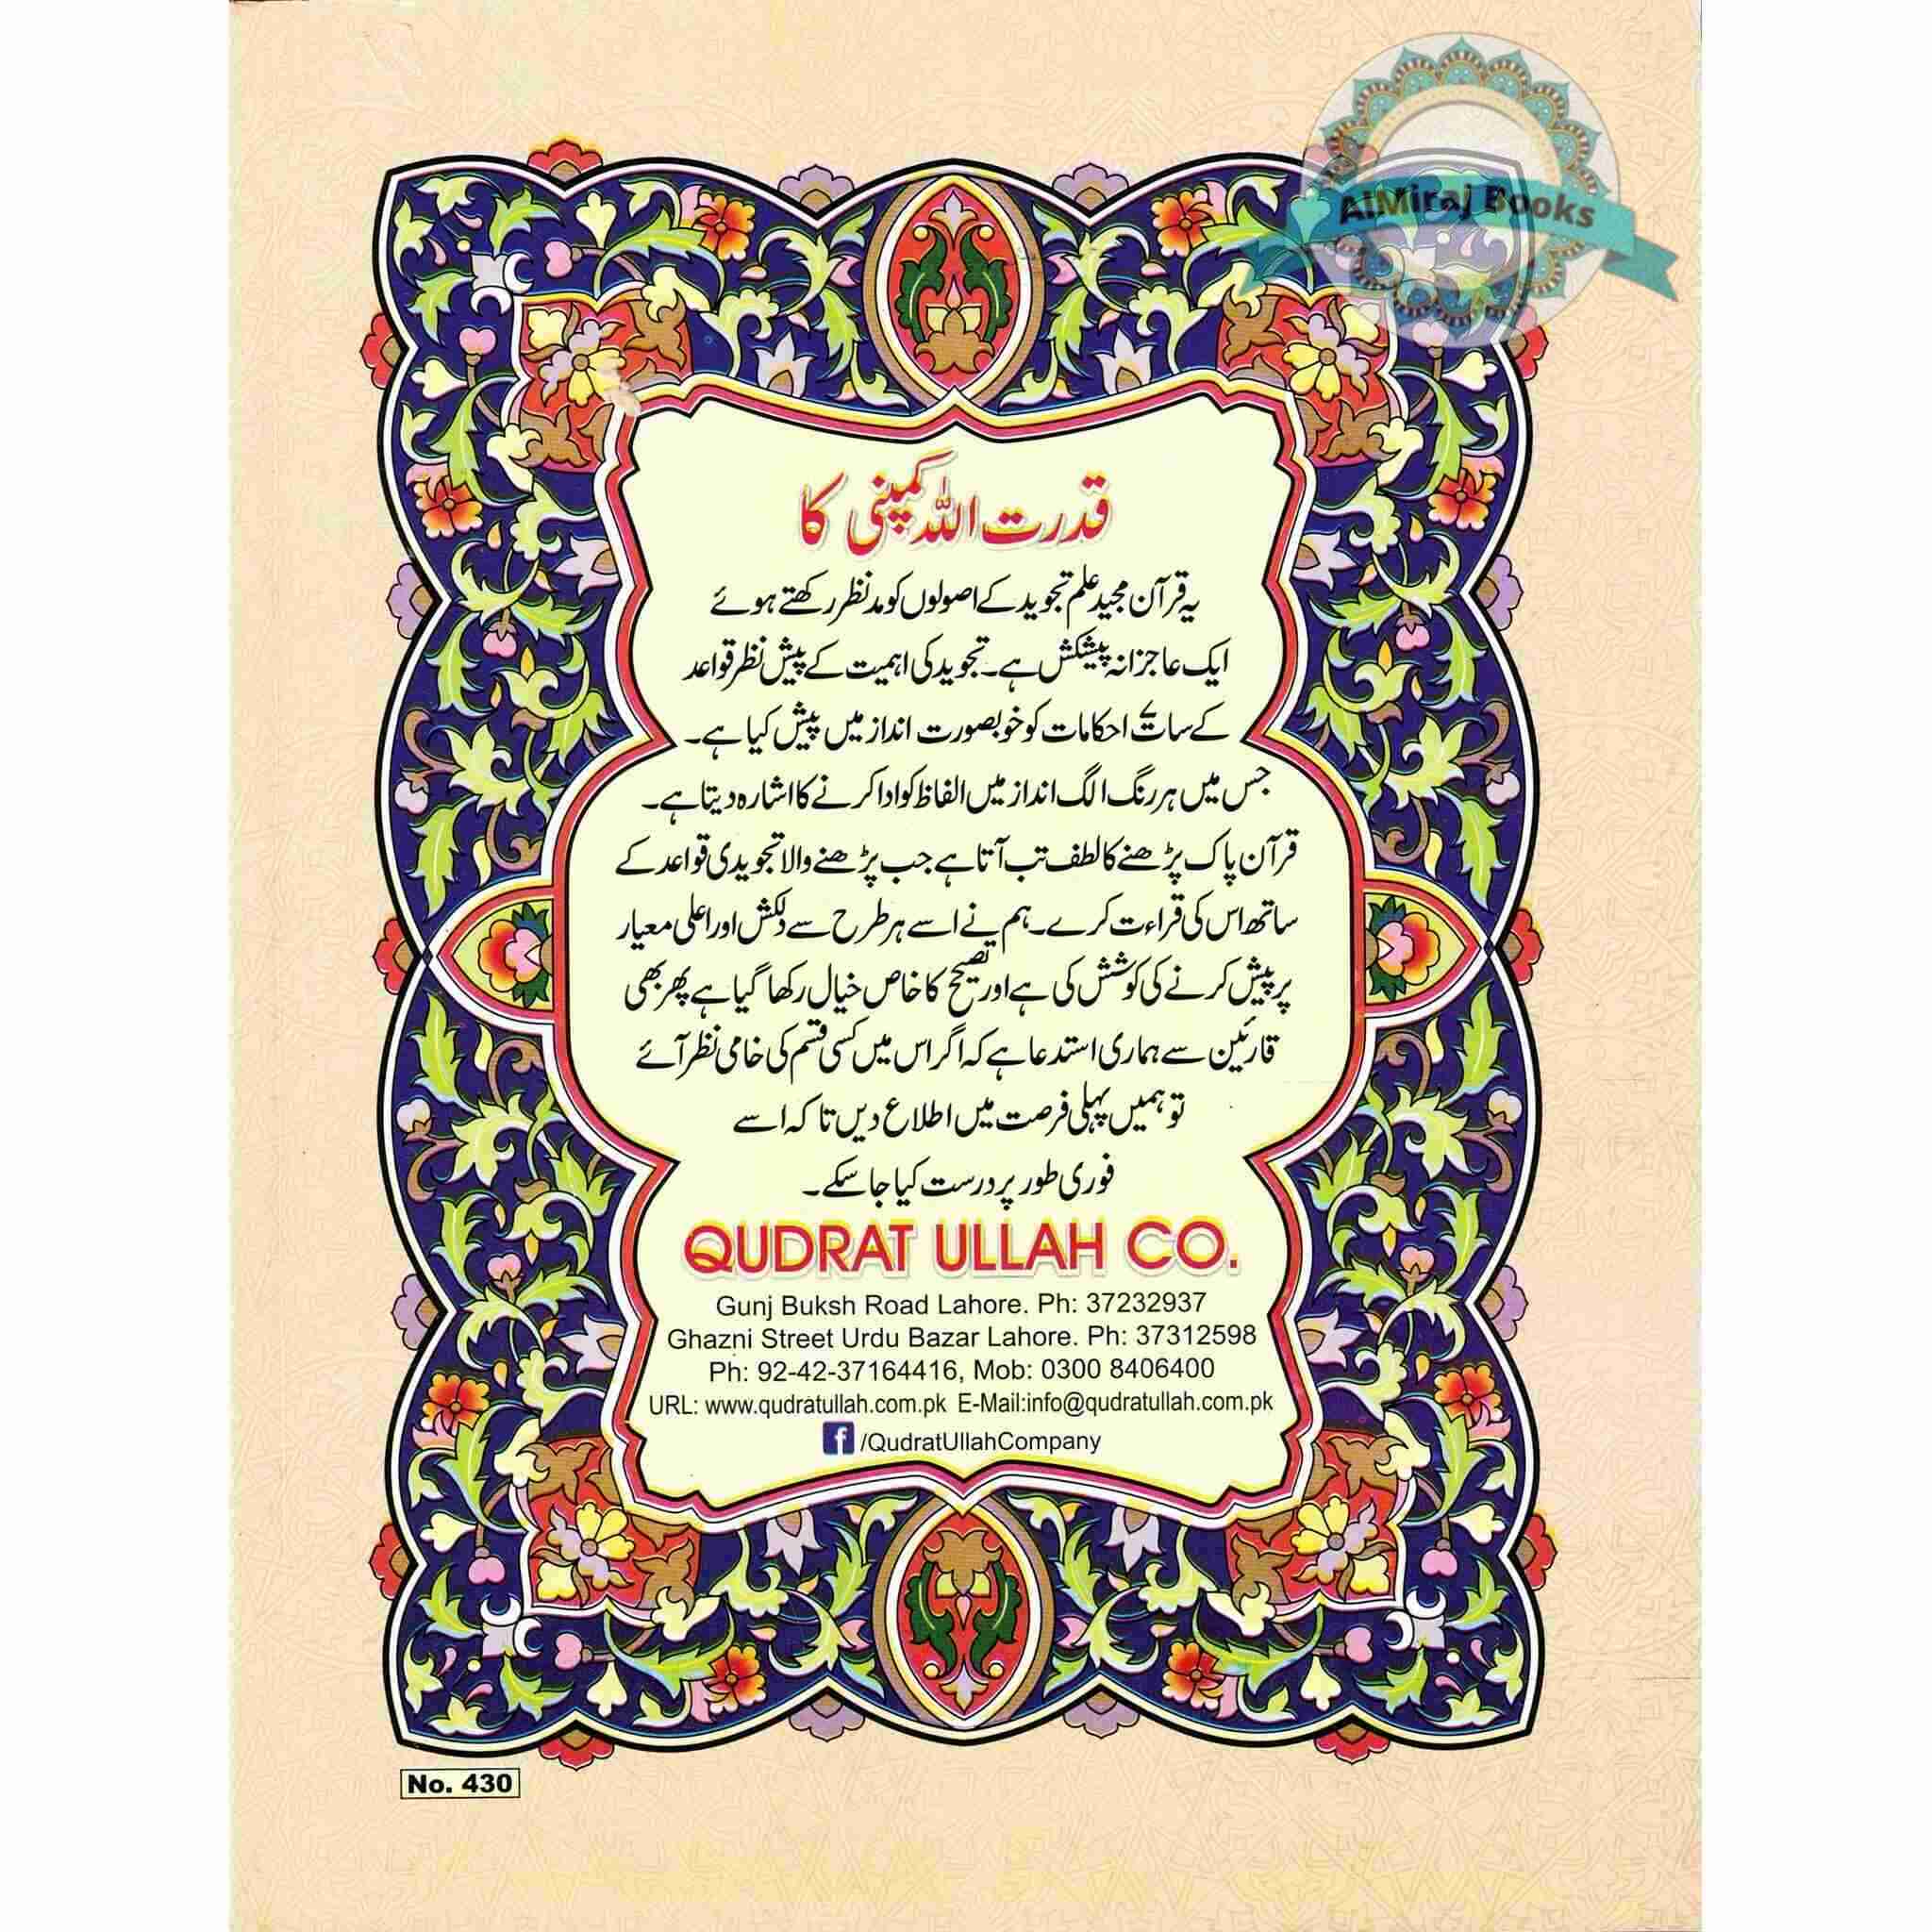 AlMiraj Books
قدرت اللہ کمپنی کا
یہ قرآن مجید علم تجوید کے اصولوں کو مدنظر رکھتے ہوئے
ایک عاجزانہ پیشکش ہے۔ تجوید کی اہمیت کے پیش نظر قواعد
کے سات احکامات کو خوبصورت انداز میں پیش کیا ہے۔
جس میں ہر رنگ الگ انداز میں الفاظ کو ادا کرنے کا اشارہ دیتا ہے۔
قرآن پاک پڑھنے کا لطف تب آتا ہے جب پڑھنے والا تجویدی قواعد کے
ساتھ اس کی قراءت کرے۔ ہم نے اسے ہر طرح سے دلکش اور اعلی معیار
پر پیش کرنے کی کوشش کی ہے اور تصحیح کا خاص خیال رکھا گیا ہے پھر بھی
قارئین سے ہماری استدعا ہے کہ اگر اس میں کسی قسم کی خامی نظر آئے
تو ہمیں پہلی فرصت میں اطلاع دیں تا کہ اسے
فوری طور پر درست کیا جا سکے۔
QUDRAT ULLAH CO.
Gunj Buksh Road Lahore. Ph: 37232937
Ghazni Street Urdu Bazar Lahore. Ph: 37312598
Ph: 92-42-37164416, Mob: 0300 8406400
URL: www.qudratullah.com.pk E-Mail:info@qudratullah.com.pk
f /QudratUllahCompany
No. 430